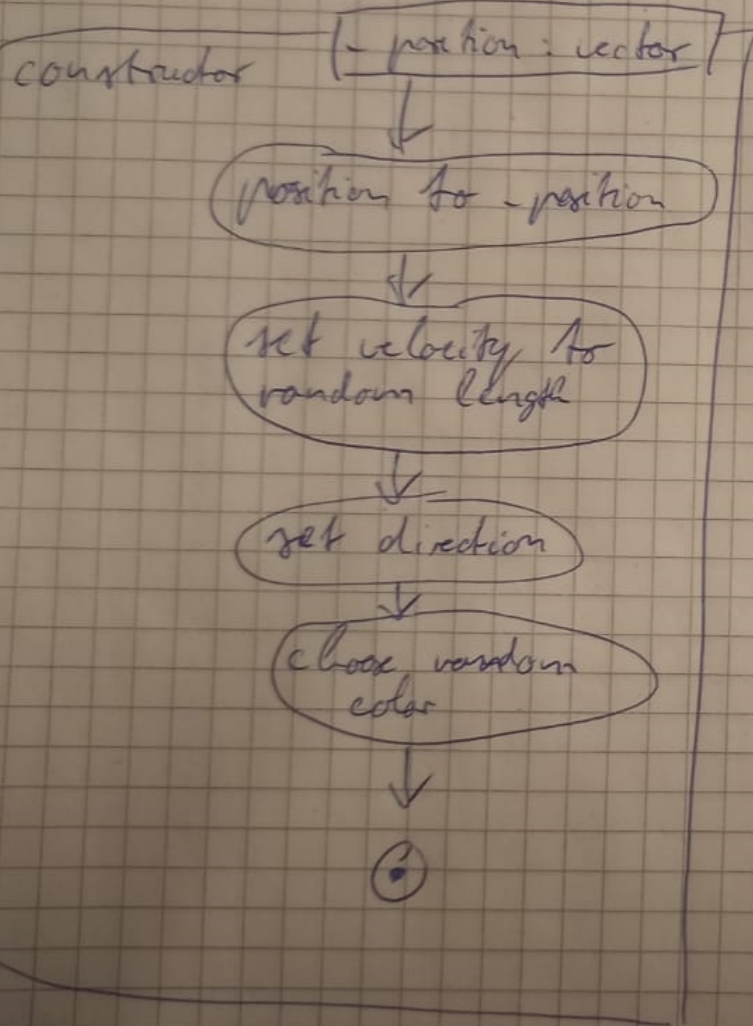 constructor
- position : vector
position to - position
set velocity to
random length
set direction
choose random
color